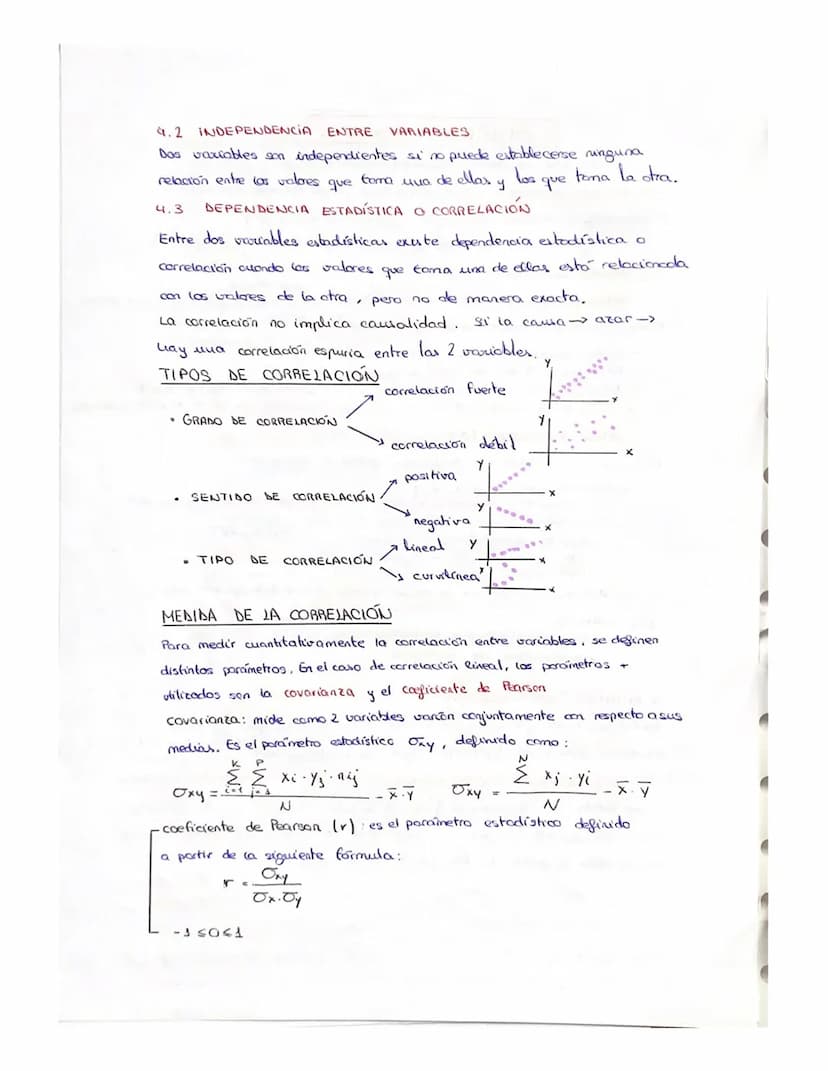 4.2 INDEPENDENCIA ENTRE VARIABLES
Dos variables son independientes si no puede establecerse ninguna
relación entre los valores que toma una de ellas y los que toma la otra.
4.3 DEPENDENCIA ESTADÍSTICA O CORRELACIÓN
Entre dos variables estadísticas existe dependencia estadística o
correlación cuando los valores que toma una de ellas está relacionada
con los valores de la otra, pero no de manera exacta.
La correlación no implica causalidad. Si la causa → azar →
hay una correlación espuria entre las 2 variables.
TIPOS DE CORRELACIÓN
correlación fuerte
y
x
• GRADO DE CORRELACIÓN
correlación débil
y
x
positiva
y
x
• SENTIDO DE CORRELACIÓN
negativa
y
x
lineal
y
x
• TIPO DE CORRELACIÓN
curvilínea
y
x
MEDIDA DE LA CORRELACIÓN
Para medir cuantitativamente la correlación entre variables, se definen
distintos parámetros. En el caso de correlación lineal, los parámetros +
utilizados son la covarianza y el coeficiente de Pearson
covarianza: mide como 2 variables varían conjuntamente con respecto a sus
medias. Es el parámetro estadístico σxy, definido como:
σxy = (Σ_{i=1}^{K} Σ_{j=1}^{P} xi · yj · nij) / N − x̄·ȳ    σxy = (Σ^{N} xj · yi) / N − x̄·ȳ
coeficiente de Pearson (r): es el parámetro estadístico definido
a partir de la siguiente fórmula:
r = σxy / σx·σy
-1≤0≤1